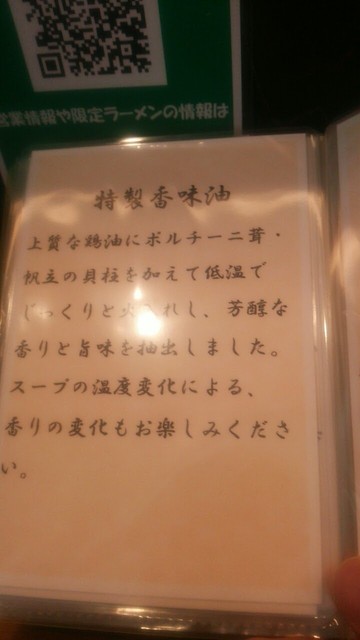 営業情報や限定ラーメンの情報は
特製香味油
上質な鶏油にポルチーニ茸・
帆立の貝柱を加えて低温で
じっくりと火入れし、芳醇な
香りと旨味を抽出しました。
スープの温度変化による、
香りの変化もお楽しみくださ
い。